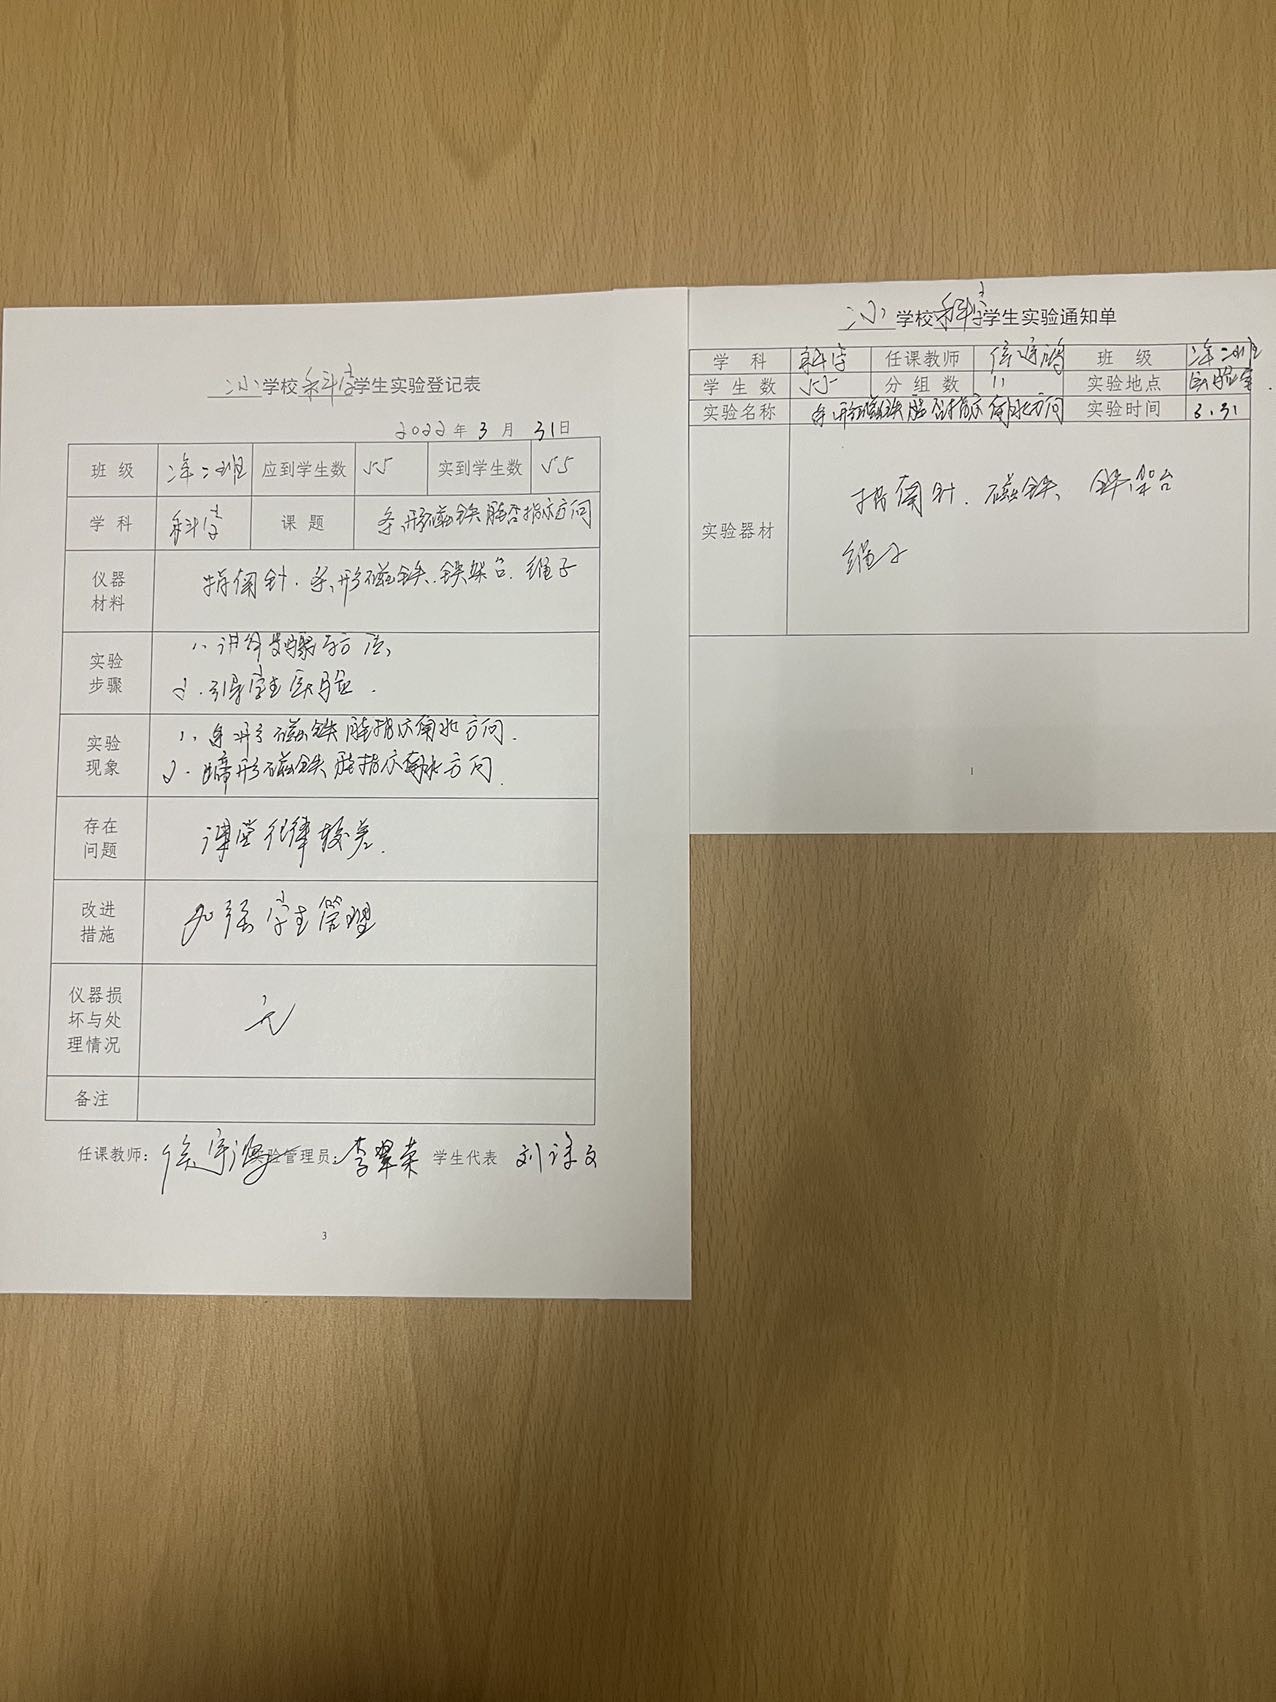 小学校科学学生实验登记表
2022年3月31日
班级 二班 应到学生数 55 实到学生数 55
学科 科学 课题 条形磁铁能否指示方向
仪器材料 指南针、条形磁铁、铁架台、绳子
实验步骤 1、讲解步骤与方法、
2、引导学生实验.
实验现象 1、条形磁铁能指示南北方向.
2、蹄形磁铁能指示南北方向.
存在问题 课堂纪律较差.
改进措施 加强学生管理
仪器损坏与处理情况 无
备注
任课教师: 实验管理员: 李翠荣 学生代表 刘文
3
小学校科学学生实验通知单
学科 科学 任课教师 班级 二班
学生数 55 分组数 11 实验地点 实验室
实验名称 条形磁铁能否指示南北方向 实验时间 3.31
实验器材 指南针、磁铁、铁架台
绳子
1